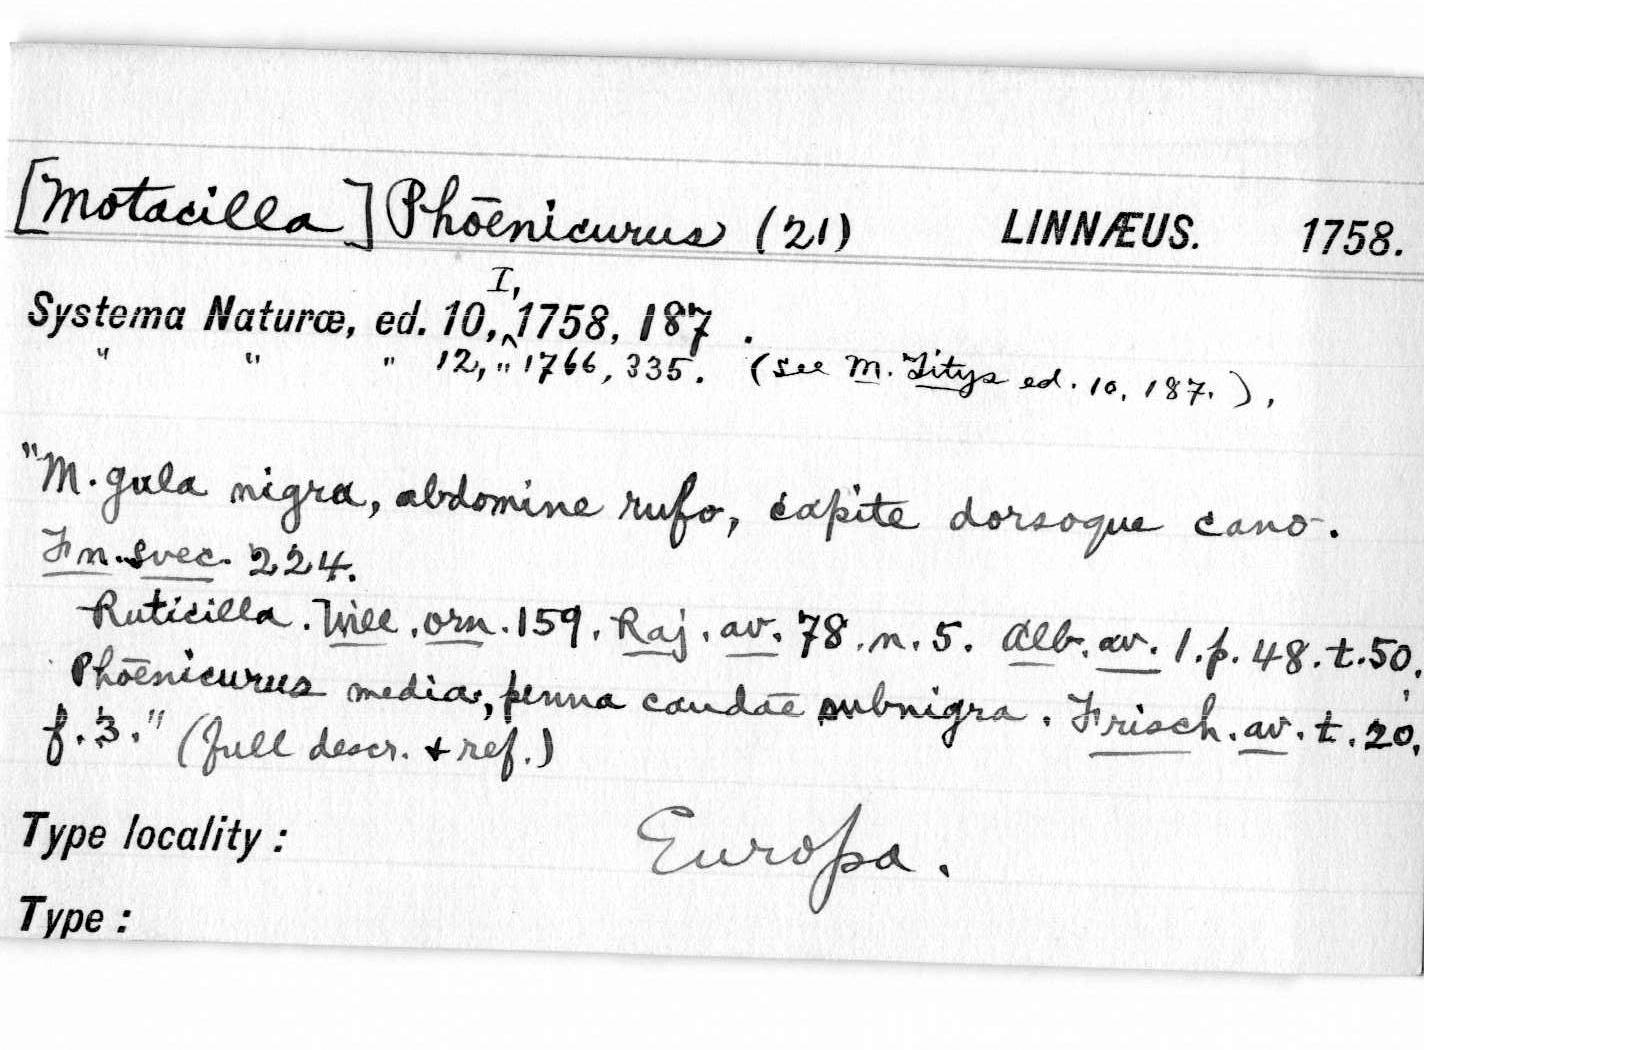 [Motacilla] Phoēnicurus (21) LINNÆUS. 1758.
Systema Naturæ, ed. 10, I, 1758, 187 .
" " " 12, " 1766, 335. (see M. Titys ed. 10, 187. ) ,
"M. gula nigra, abdomine rufo, capite dorsoque cano .
Fn. svec. 224.
Ruticilla . Will . orn . 159 . Raj . av . 78 . n . 5 . Alb . av . 1 . p . 48 . t . 50 ,
Phoēnicurus media, penna caudāe subnigra . Frisch . av . t . 20 ,
f . 3 . " (full descr. + ref.)
Type locality : Europa .
Type :